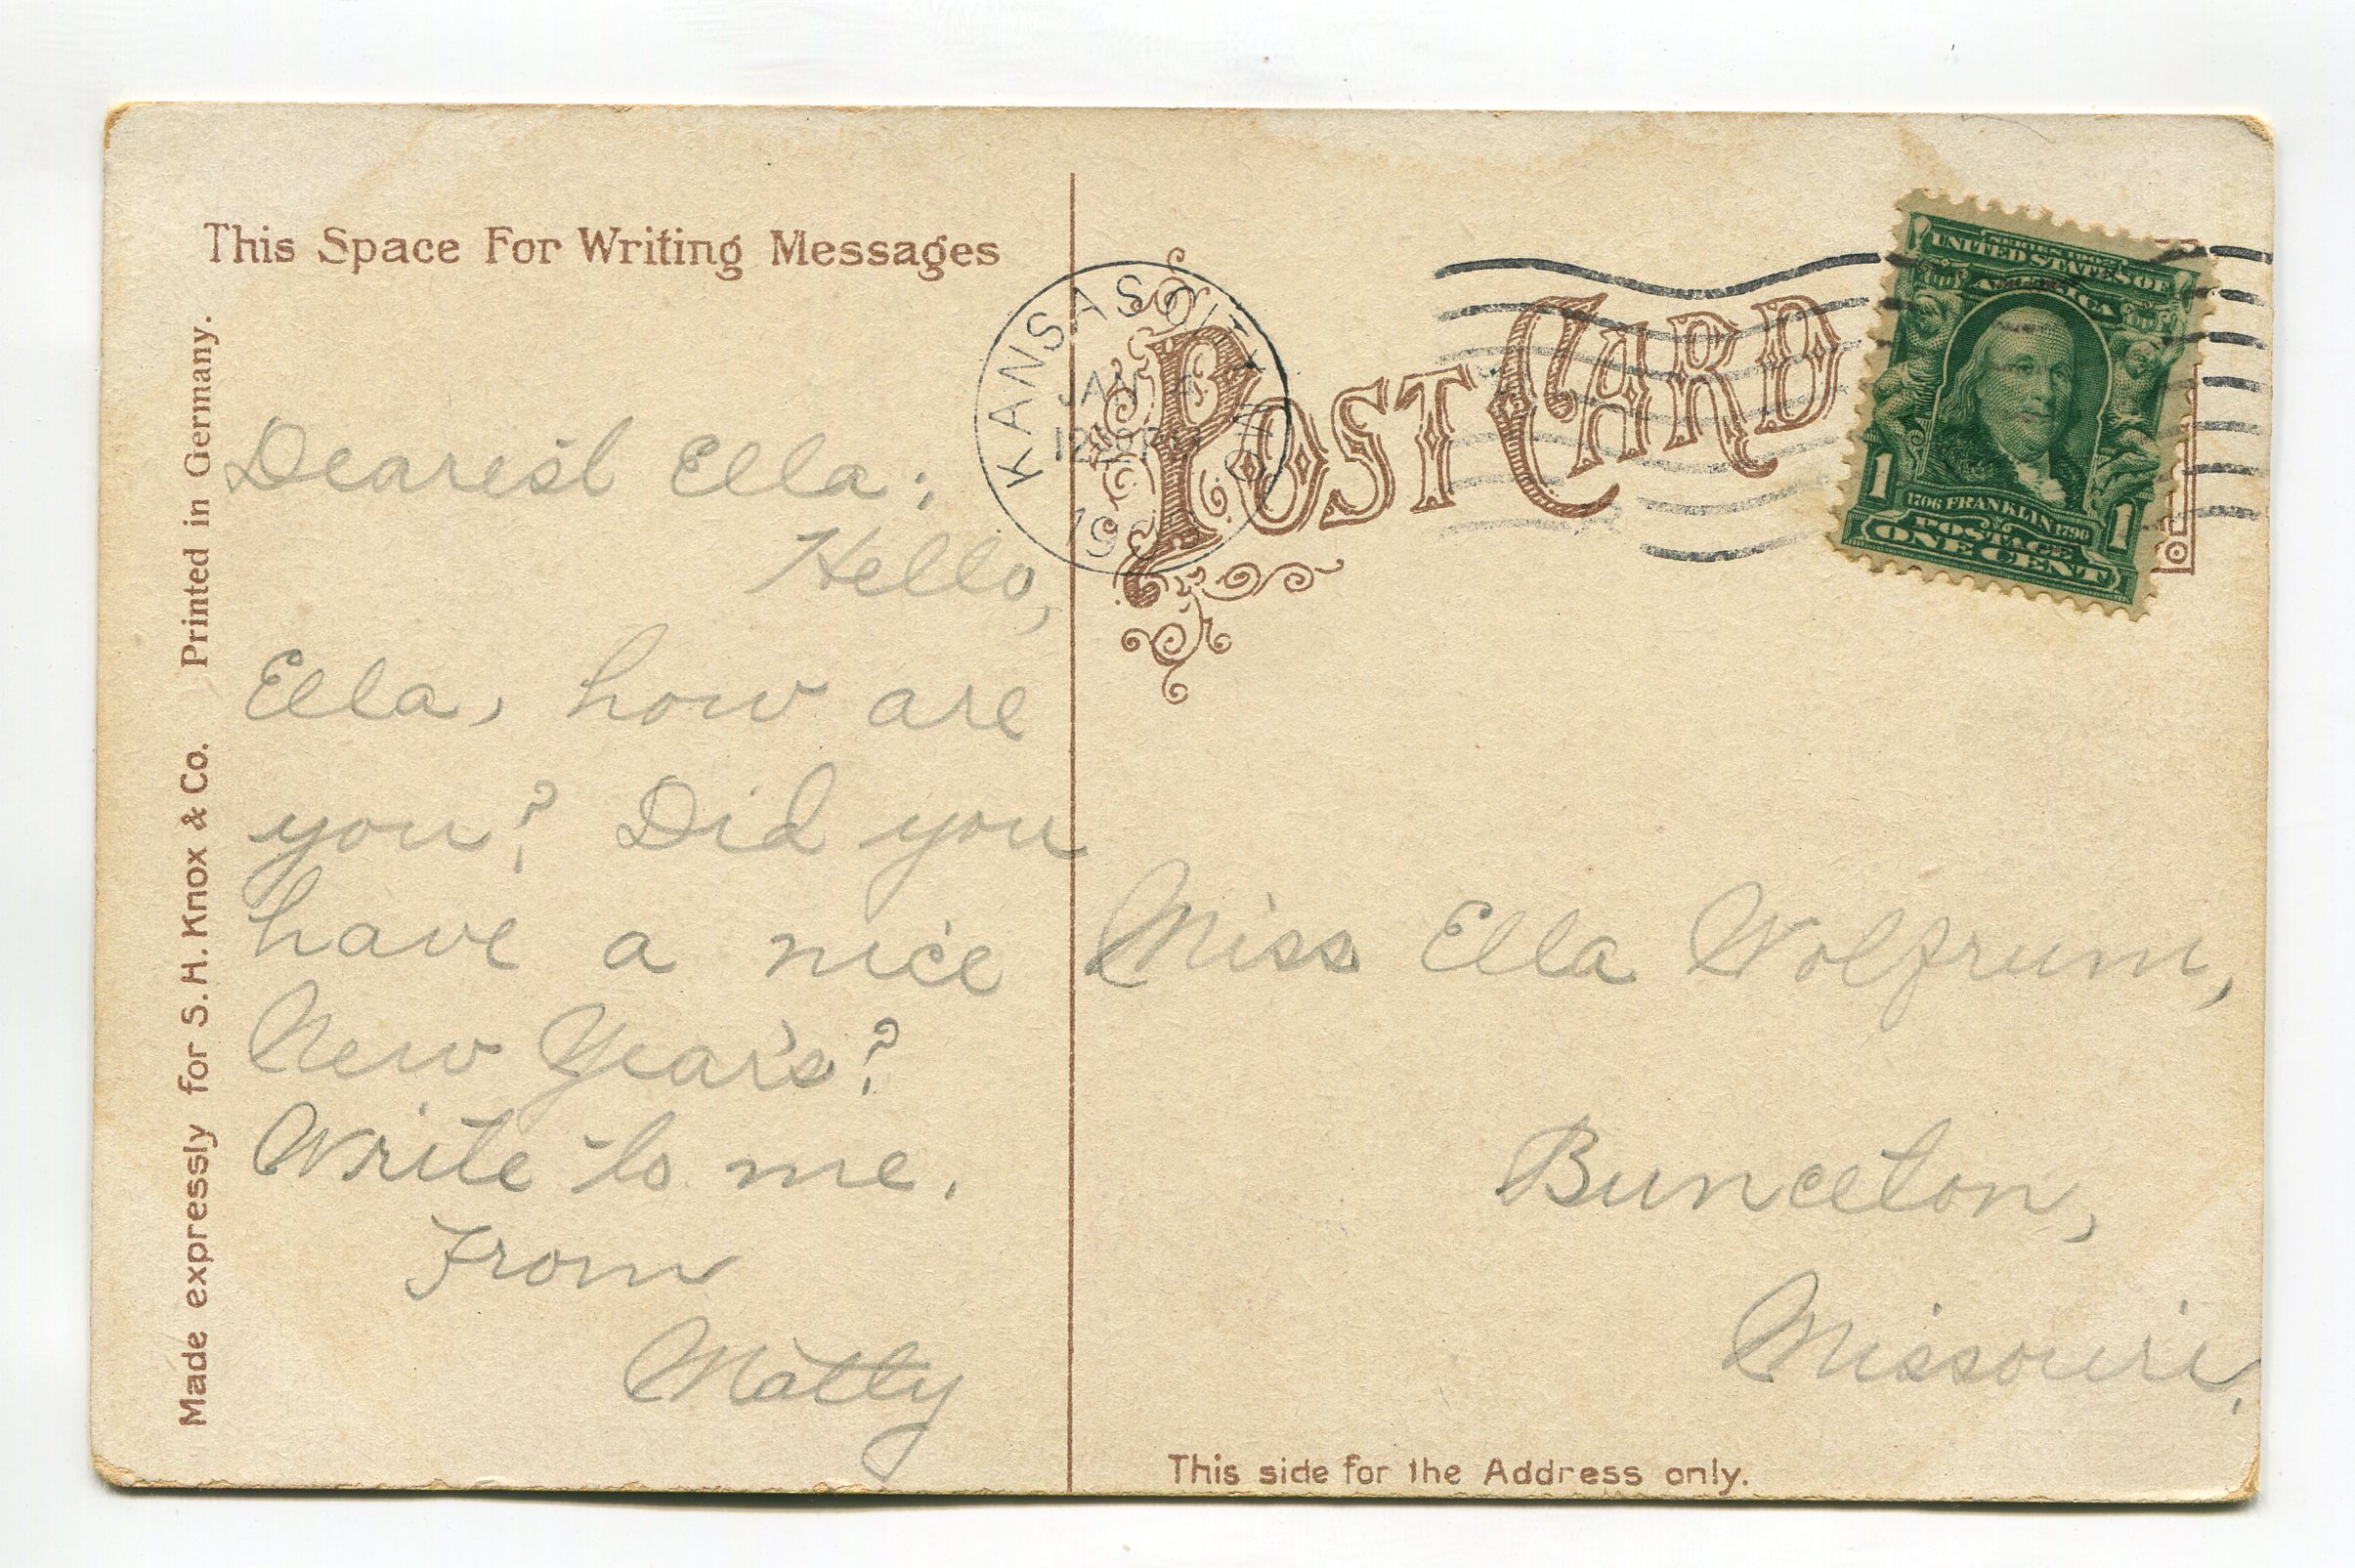 This Space For Writing Messages
Made expressly for S. H. Knox & Co. Printed in Germany.
Dearest Ella:
Hello,
Ella, how are
you? Did you
have a nice
New Year's?
Write to me.
From
Matty
KANSAS CITY
JAN
POST CARD
SERIES 1902
UNITED STATES OF
AMERICA
1706 FRANKLIN 1790
1 1
POSTAGE
ONE CENT
Miss Ella Wolfrum,
Bunceton,
Missouri.
This side for the Address only.